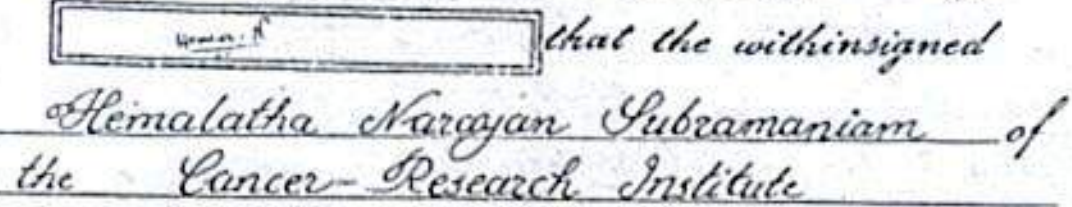 that the withinsigned
Hemalatha Narayan Subramaniam of
the Cancer-Research Institute